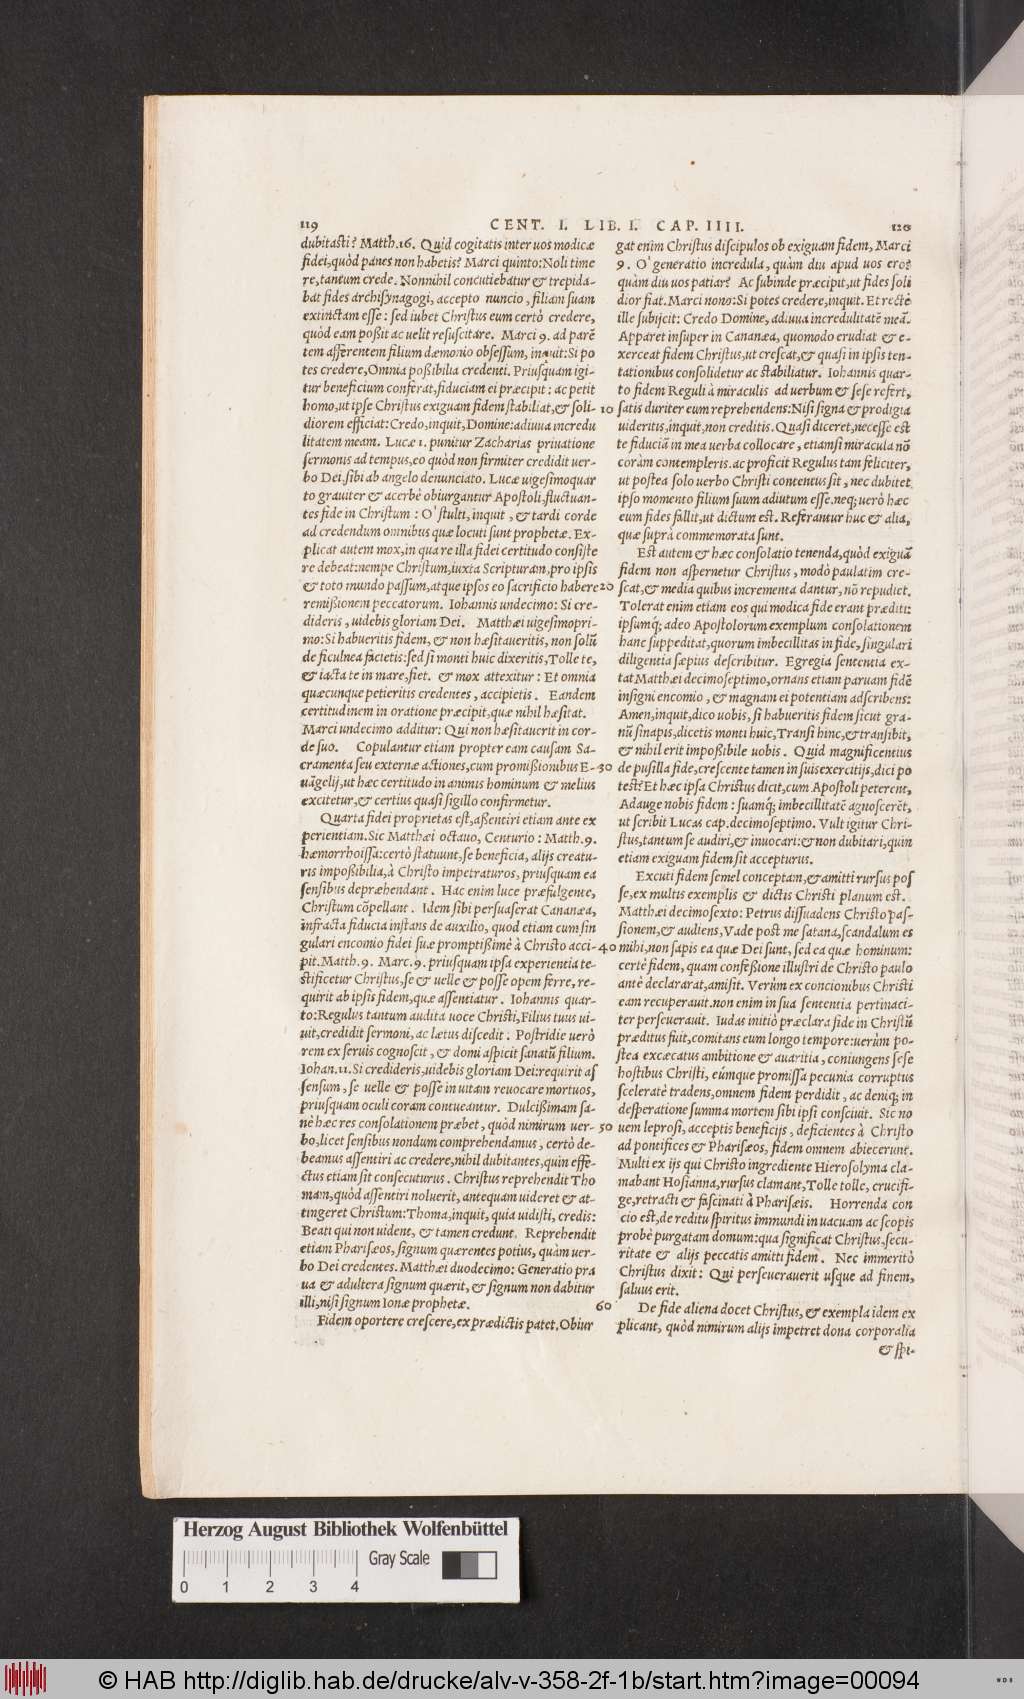 119
CENT. I. LIB. I. CAP. IIII.
120
dubitasti? Matth.16. Quid cogitatis inter uos modicæ
fidei, quòd panes non habetis? Marci quinto: Noli time
re, tantum crede. Nonnihil concutiebatur & trepida-
bat fides archisynagogi, accepto nuncio, filiam suam
extinctam esse: sed iubet Christus eum certò credere,
quòd eam poßit ac uelit resuscitare. Marci 9. ad parē
tem afferentem filium dæmonio obsessum, inquit: Si po
tes credere, Omnia poßibilia credenti. Priusquam igi-
tur beneficium conferat, fiduciam ei præcipit: ac petit
homo, ut ipse Christus exiguam fidem stabiliat, & soli-
diorem efficiat: Credo, inquit, Domine: adiuua incredu
litatem meam. Lucæ 1. punitur Zacharias priuatione
sermonis ad tempus, eo quòd non firmiter credidit uer-
bo Dei, sibi ab angelo denunciato. Lucæ uigesimoquar
to grauiter & acerbè obiurgantur Apostoli, fluctuan-
tes fide in Christum: O' stulti, inquit, & tardi corde
ad credendum omnibus quæ locuti sunt prophetæ. Ex-
plicat autem mox, in qua re illa fidei certitudo consiste
re debeat: nempe Christum, iuxta Scripturam, pro ipsis
& toto mundo passum, atque ipsos eo sacrificio habere
remißionem peccatorum. Iohannis undecimo: Si cre-
dideris, uidebis gloriam Dei. Matthæi uigesimopri-
mo: Si habueritis fidem, & non hæsitaueritis, non solū
de ficulnea facietis: sed si monti huic dixeritis, Tolle te,
& iacta te in mare, fiet. & mox attexitur: Et omnia
quæcunque petieritis credentes, accipietis. Eandem
certitudinem in oratione præcipit, quæ nihil hæsitat.
Marci undecimo additur: Qui non hæsitauerit in cor-
de suo. Copulantur etiam propter eam causam Sa-
cramenta seu externæ actiones, cum promißionibus E-
uāgelij, ut hæc certitudo in animis hominum & melius
excitetur, & certius quasi sigillo confirmetur.
Quarta fidei proprietas est, aßentiri etiam ante ex
perientiam. Sic Matthæi octauo, Centurio: Matth.9.
hæmorrhoissa: certò statuunt, se beneficia, alijs creatu-
ris impoßibilia, à Christo impetraturos, priusquam ea
sensibus depræhendant. Hac enim luce præfulgente,
Christum cōpellant. Idem sibi persuaserat Cananæa,
infracta fiducia instans de auxilio, quod etiam cum sin
gulari encomio fidei suæ promptißimè à Christo acci-
pit. Matth.9. Marc.9. priusquam ipsa experientia te-
stificetur Christus, se & uelle & posse opem ferre, re-
quirit ab ipsis fidem, quæ assentiatur. Iohannis quar-
to: Regulus tantum audita uoce Christi, Filius tuus ui-
uit, credidit sermoni, ac lætus discedit. Postridie uerò
rem ex seruis cognoscit, & domi aspicit sanatū filium.
Iohan.11. Si credideris, uidebis gloriam Dei: requirit as
sensum, se uelle & posse in uitam reuocare mortuos,
priusquam oculi coram contueantur. Dulcißimam sa-
nè hæc res consolationem præbet, quòd nimirum uer-
bo, licet sensibus nondum comprehendamus, certò de-
beamus assentiri ac credere, nihil dubitantes, quin effe-
ctus etiam sit consecuturus. Christus reprehendit Tho
mam, quòd assentiri noluerit, antequam uideret & at-
tingeret Christum: Thoma, inquit, quia uidisti, credis:
Beati qui non uident, & tamen credunt. Reprehendit
etiam Pharisæos, signum quærentes potius, quàm uer-
bo Dei credentes. Matthæi duodecimo: Generatio pra
ua & adultera signum quærit, & signum non dabitur
illi, nisi signum Ionæ prophetæ.
Fidem oportere crescere, ex prædictis patet. Obiur
10
20
30
40
50
60
gat enim Christus discipulos ob exiguam fidem, Marci
9. O' generatio incredula, quàm diu apud uos ero?
quàm diu uos patiar? Ac subinde præcipit, ut fides soli
dior fiat. Marci nono: Si potes credere, inquit. Et rectè
ille subijcit: Credo Domine, adiuua incredulitatē meā.
Apparet insuper in Cananæa, quomodo erudiat & e-
xerceat fidem Christus, ut crescat, & quasi in ipsis ten-
tationibus consolidetur ac stabiliatur. Iohannis quar-
to fidem Reguli à miraculis ad uerbum & sese refert,
satis duriter eum reprehendens: Nisi signa & prodigia
uideritis, inquit, non creditis. Quasi diceret, necesse est
te fiduciā in mea uerba collocare, etiamsi miracula nō
coràm contempleris. ac proficit Regulus tam feliciter,
ut postea solo uerbo Christi contentus sit, nec dubitet
ipso momento filium suum adiutum esse. neq; uerò hæc
eum fides fallit, ut dictum est. Referantur huc & alia,
quæ suprà commemorata sunt.
Est autem & hæc consolatio tenenda, quòd exiguā
fidem non aspernetur Christus, modò paulatim cre-
scat, & media quibus incrementa dantur, nō repudiet.
Tolerat enim etiam eos qui modica fide erant præditi:
ipsumq; adeo Apostolorum exemplum consolationem
hanc suppeditat, quorum imbecillitas in fide, singulari
diligentia sæpius describitur. Egregia sententia ex-
tat Matthæi decimoseptimo, ornans etiam paruam fidē
insigni encomio, & magnam ei potentiam adscribens:
Amen, inquit, dico uobis, si habueritis fidem sicut gra-
nū sinapis, dicetis monti huic, Transi hinc, & transibit,
& nihil erit impoßibile uobis. Quid magnificentius
de pusilla fide, crescente tamen in suis exercitijs, dici po
test? Et hæc ipsa Christus dicit, cum Apostoli peterent,
Adauge nobis fidem: suamq; imbecillitatē agnoscerēt,
ut scribit Lucas cap. decimoseptimo. Vult igitur Chri-
stus, tantum se audiri, & inuocari: & non dubitari, quin
etiam exiguam fidem sit accepturus.
Excuti fidem semel conceptam, & amitti rursus pos
se, ex multis exemplis & dictis Christi planum est.
Matthæi decimosexto: Petrus dissuadens Christo pas-
sionem, & audiens, Vade post me satana, scandalum es
mihi, non sapis ea quæ Dei sunt, sed ea quæ hominum:
certè fidem, quam confeßione illustri de Christo paulo
antè declararat, amisit. Verùm ex concionibus Christi
eam recuperauit. non enim in sua sententia pertinaci-
ter perseuerauit. Iudas initiò præclara fide in Christū
præditus fuit, comitans eum longo tempore: uerùm po-
stea excæcatus ambitione & auaritia, coniungens sese
hostibus Christi, eúmque promissa pecunia corruptus
sceleratè tradens, omnem fidem perdidit, ac deniq; in
desperatione summa mortem sibi ipsi consciuit. Sic no
uem leprosi, acceptis beneficijs, deficientes à Christo
ad pontifices & Pharisæos, fidem omnem abiecerunt.
Multi ex ijs qui Christo ingrediente Hierosolyma cla-
mabant Hosianna, rursus clamant, Tolle tolle, crucifi-
ge, retracti & fascinati à Pharisæis. Horrenda con
cio est, de reditu spiritus immundi in uacuam ac scopis
probè purgatam domum: qua significat Christus, secu-
ritate & alijs peccatis amitti fidem. Nec immeritò
Christus dixit: Qui perseuerauerit usque ad finem,
saluus erit.
De fide aliena docet Christus, & exempla idem ex
plicant, quòd nimirum alijs impetret dona corporalia
& spi-
Herzog August Bibliothek Wolfenbüttel
Gray Scale
0 1 2 3 4
© HAB http://diglib.hab.de/drucke/alv-v-358-2f-1b/start.htm?image=00094